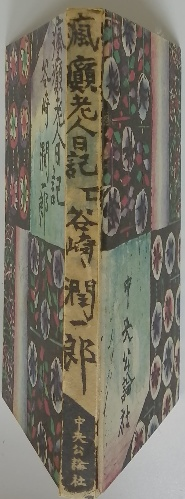 瘋癲老人日記
谷崎潤一郎
瘋癲老人日記
谷崎潤一郎
中央公論社
中央公論社